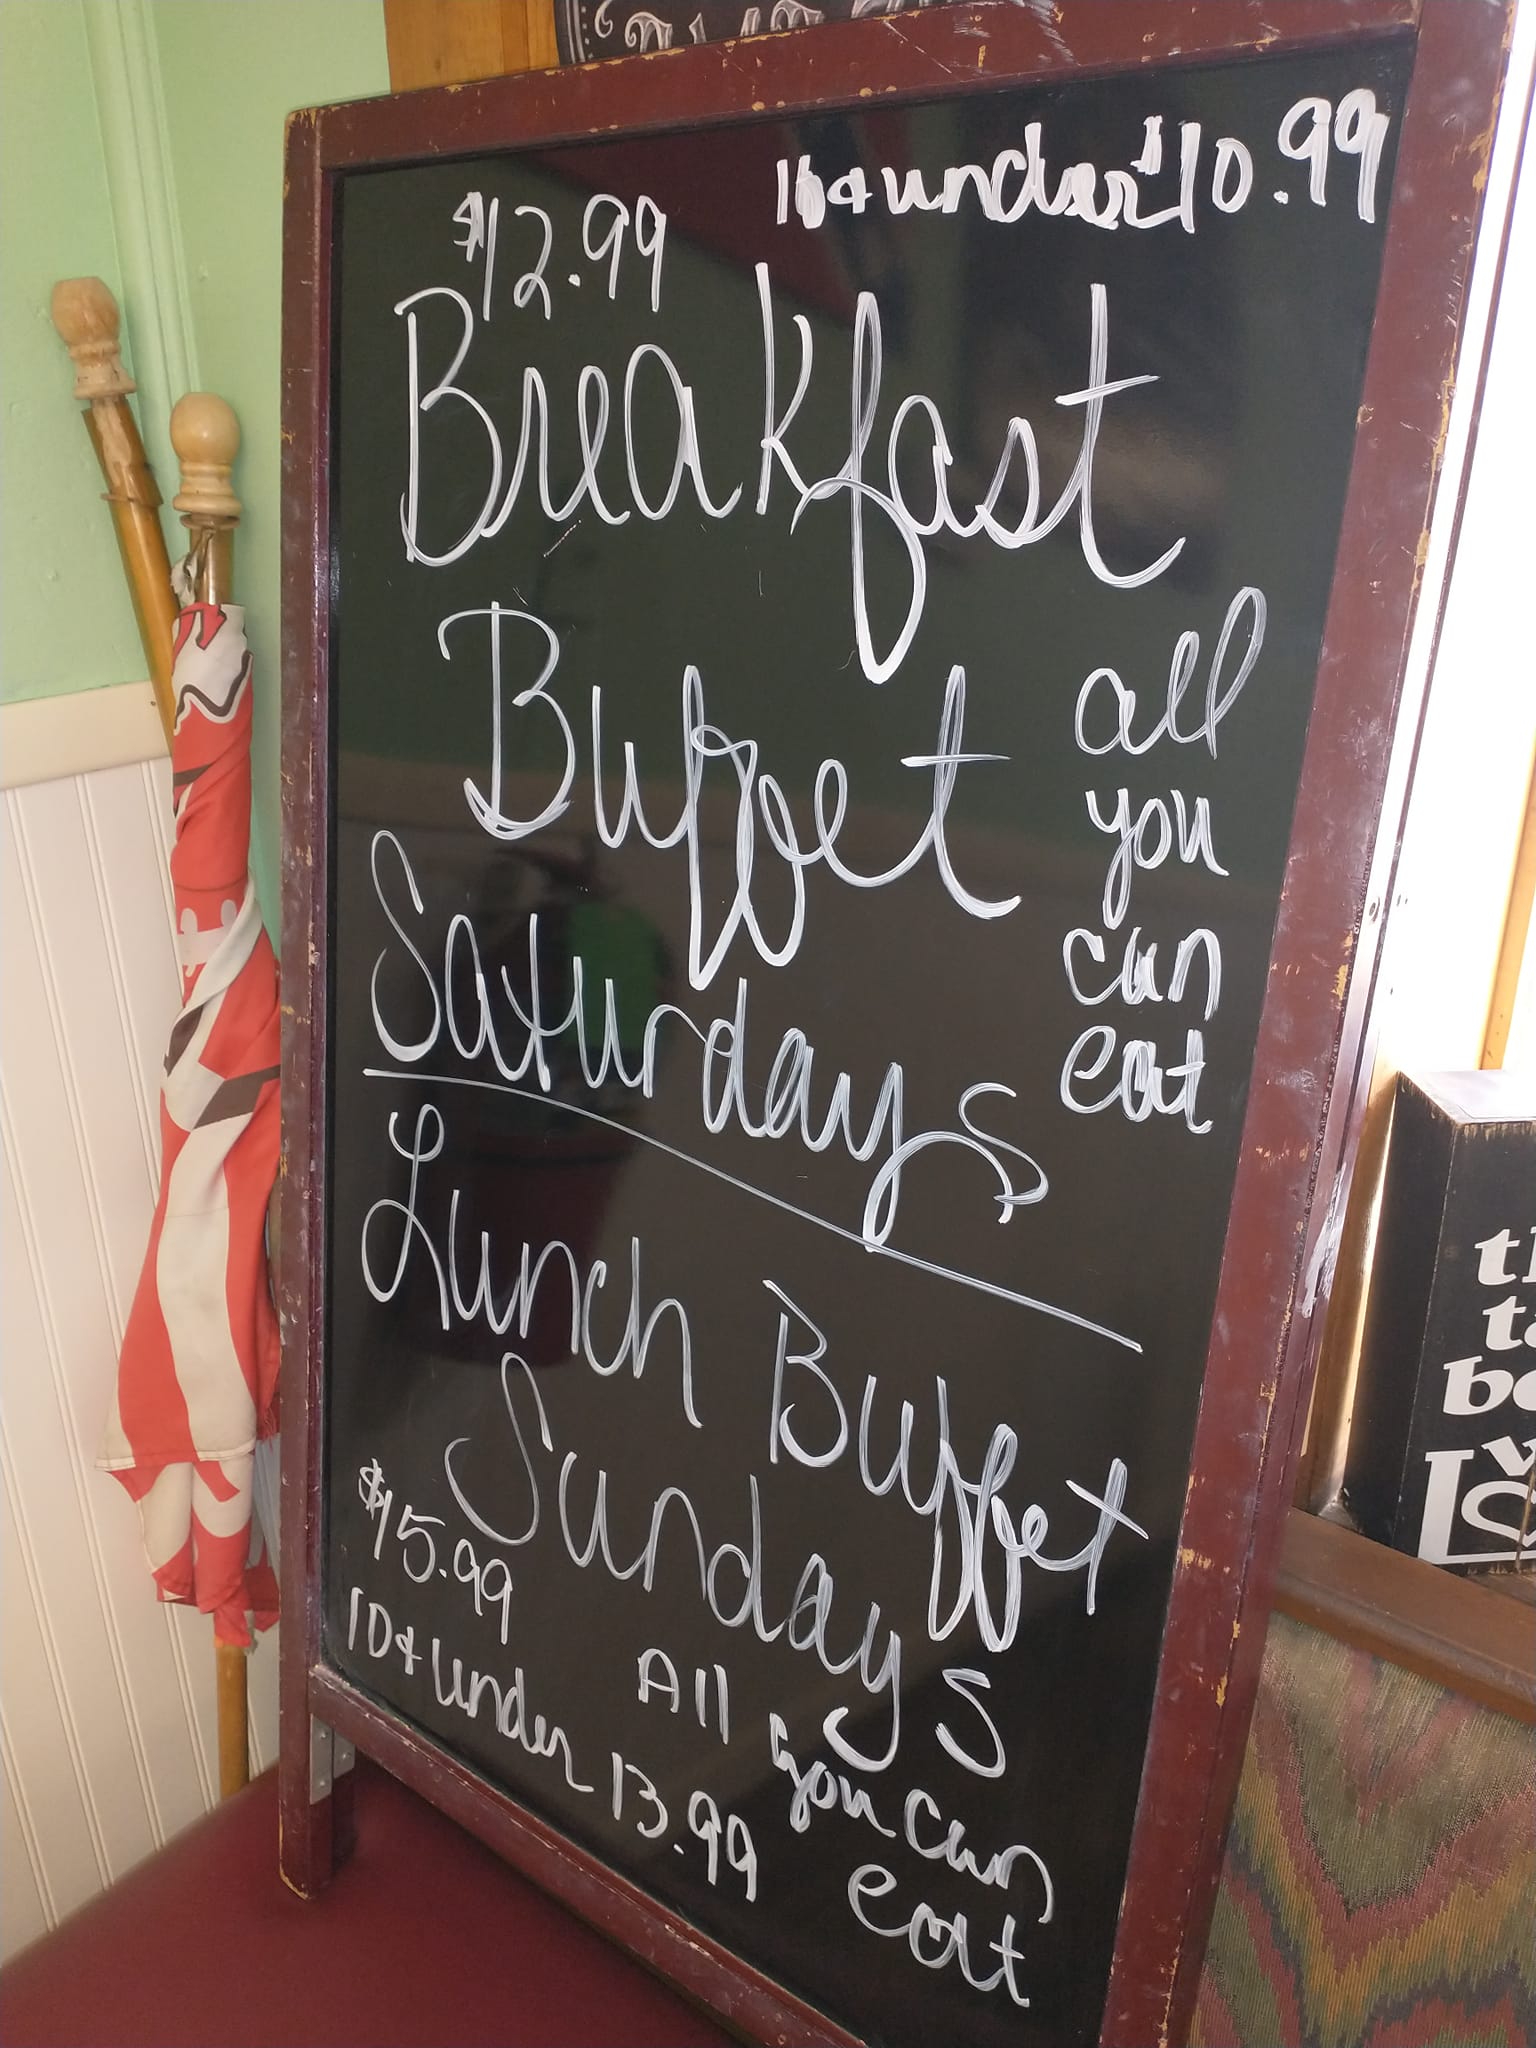 $12.99
10 & under $10.99
Breakfast
Buffet
all
you
can
eat
Saturdays
Lunch Buffet
Sundays
$15.99
10 & under 13.99
All
you can
eat